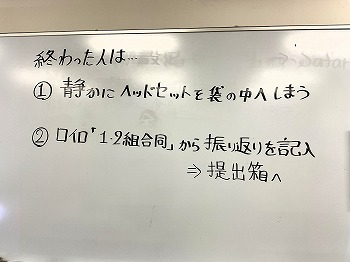 終わった人は…
① 静かにヘッドセットを袋の中へしまう
② ロイロ「1-2組合同」から振り返りを記入
⇒ 提出箱へ